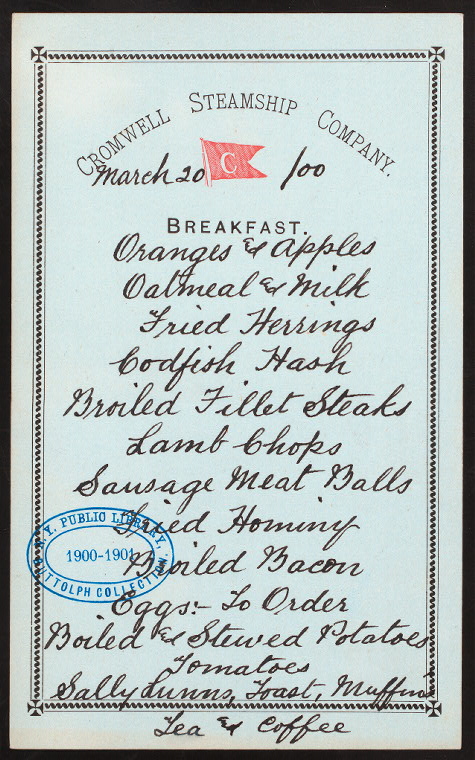 CROMWELL STEAMSHIP COMPANY.
March 20 C /00
BREAKFAST.
Oranges & Apples
Oatmeal & Milk
Fried Herrings
Codfish Hash
Broiled Fillet Steaks
Lamb Chops
Sausage Meat Balls
Fried Hominy
Broiled Bacon
Eggs:- To Order
Boiled & Stewed Potatoes
Tomatoes
Sally Lunns, Toast, Muffins
Tea & Coffee
N.Y. PUBLIC LIBRARY,
1900-1901
BUTTOLPH COLLECTION.